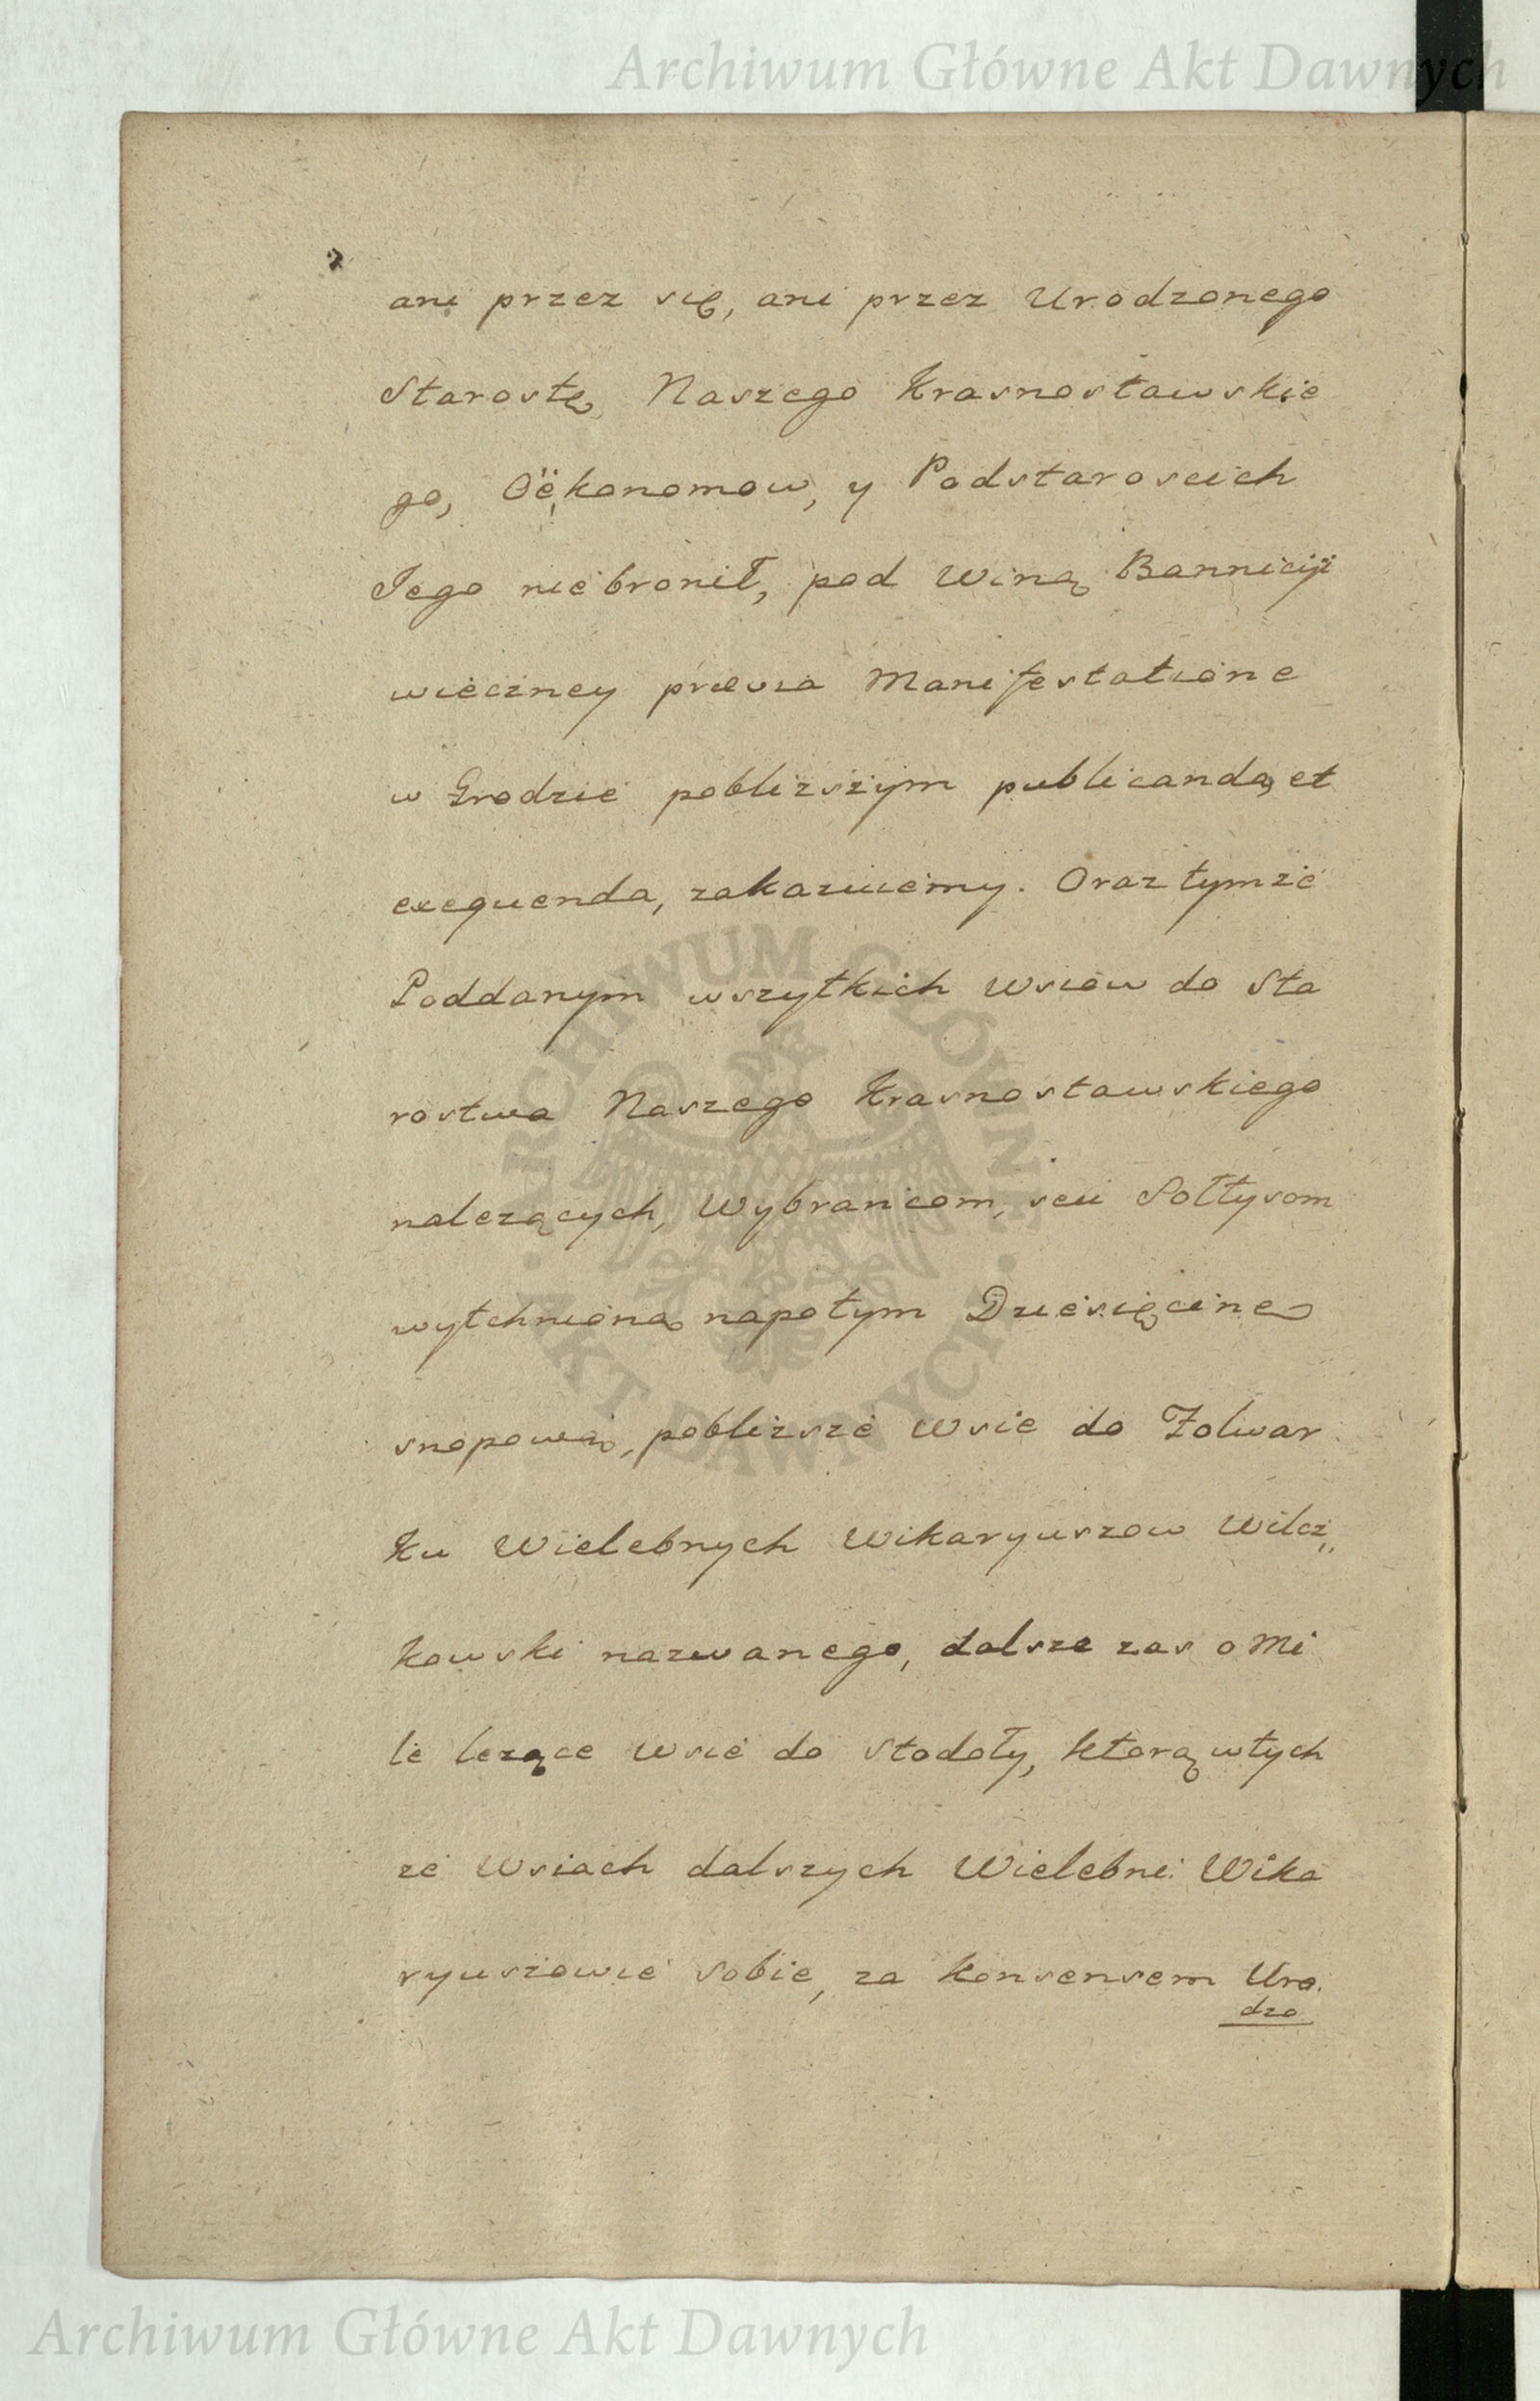 Archiwum Główne Akt Dawnych
ani przez się, ani przez Urodzonego
Starostę Naszego Krasnostawskie
go, Oekonomow, y Podstaroscich
Jego niebronił, pod winą Bannicyi
wieczney prævia Manifestatione
w Grodzie pobliższym publicanda, et
exequenda, zakazuiemy. Oraz tymże
Poddanym wszytkich Wsiow do Sta
rostwa Naszego Krasnostawskiego
nalezących, Wybrancom, seu Sołtysom
wytchnioną napotym Dziesięcinę
snopową, pobliższe Wsie do Folwar
ku Wielebnych Wikaryuszow Wilcz„
kowski nazwanego, dalsze zas o Mi
le lezące Wsie do Stodoły, ktorą wtych
że Wsiach dalszych Wielebni Wika
ryuszowie sobie, za Konsensem Uro.
dzo
ARCHIWUM GŁÓWNE
AKT DAWNYCH
Archiwum Główne Akt Dawnych